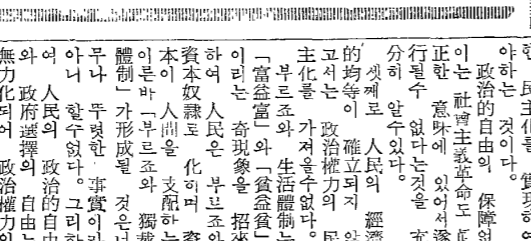 한 民主化를 實現하여
야하는 것이다.
政治的自由의 保障없
이는 社會主義革命도
正한 意味에 있어서 遂
行될수 없다는것을 充
分히 알수있다.
셋째로 人民의 經濟
的均等이 確立되지 않
고서는 政治權力의 民
主化를 가져올수없다.
부르죠와 生活體制는
「富益富」와 「貧益貧」
이라는 奇現象을 招來
하여 人民은 부르죠와
資本奴隸로 化하며 資
本이 人間을 支配하는
이른바 「부르죠와 獨裁
體制」가 形成될 것은너
무나 뚜렷한 事實이라
아니 할수없다. 그리하
여 人民의 政治的自由
와 政府選擇의 自由는
無力化되어 政治權力의